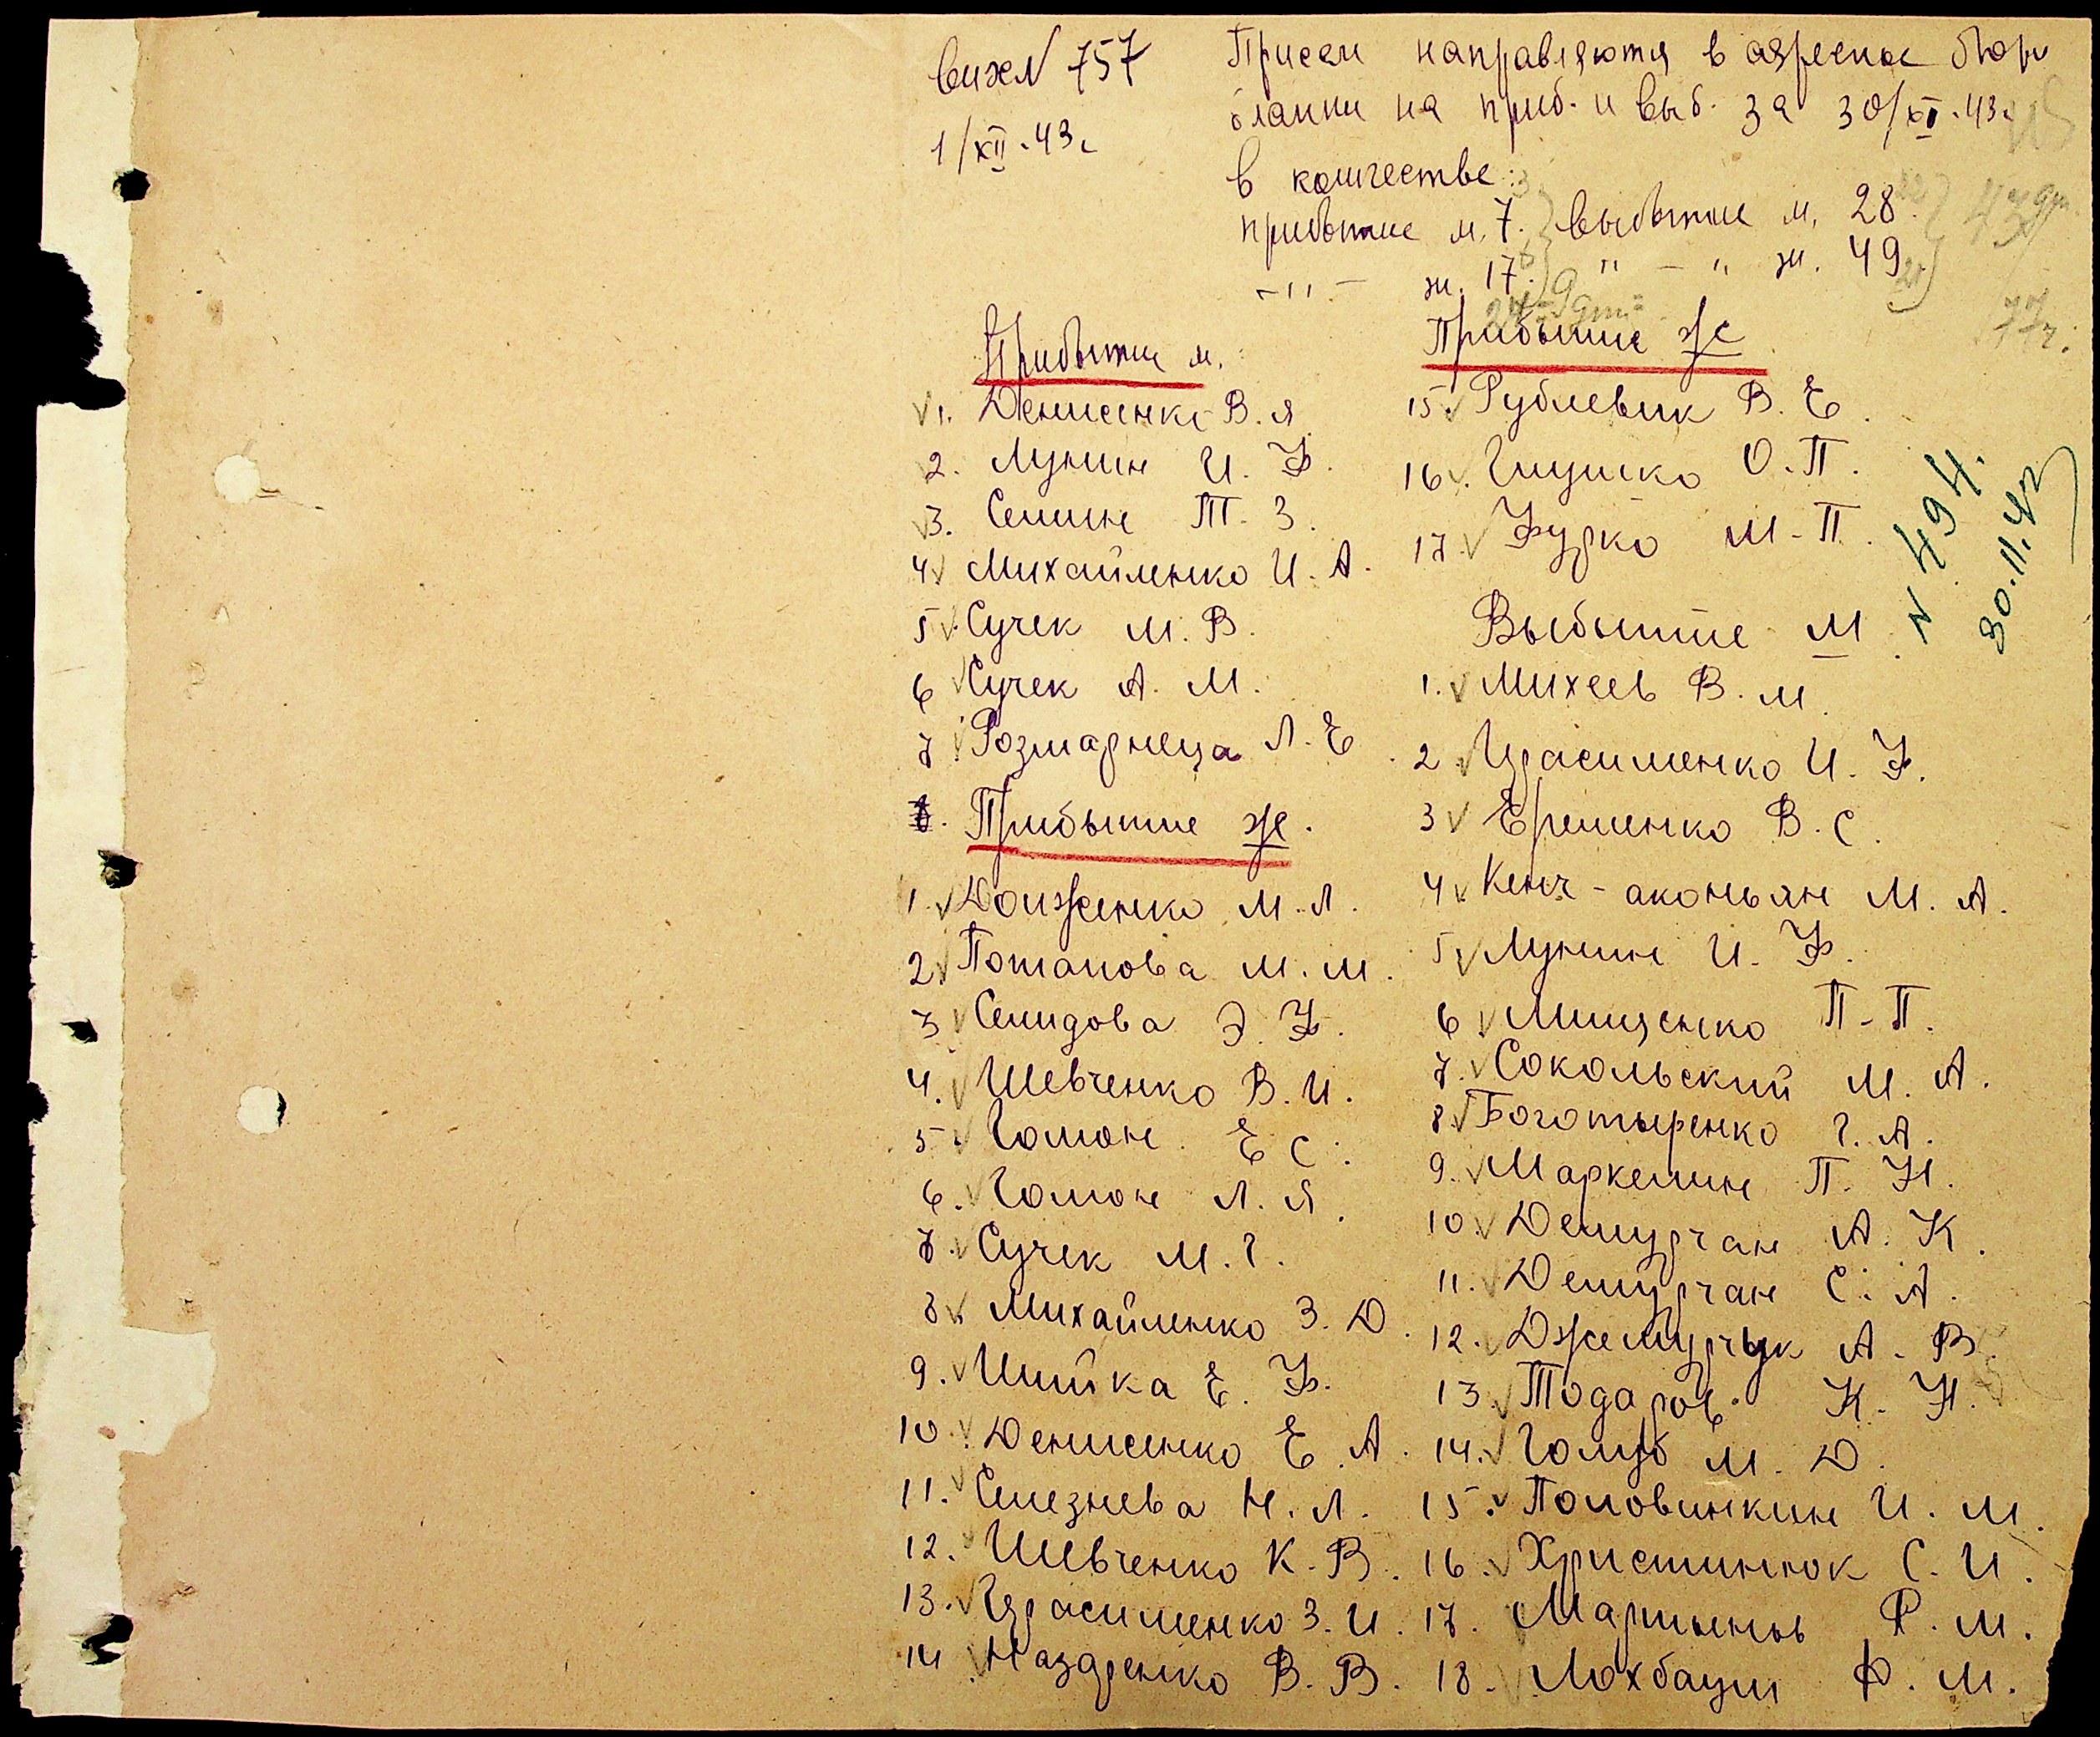 вих N 757
1/XII-43г
Присем направляются в адресное бюро
бланки на приб. и выб. за 30/XI-43г
в количестве:
прибытие м. 7. выбытие м. 28.
-"- ж. 17. "-" ж. 49
Прибытие м.
1. Денисенко В. Я.
2. Лунин И. Ф.
3. Семин Т. З.
4 Михайленко И. А.
5. Сучек М. В.
6 Сучек А. М.
7 Розмарица Л. Е.
Прибытие ж.
1. Долженко М. Л.
2. Потапова М. М.
3 Семидова Э. Ф.
4. Шевченко В. И.
5. Гомон Е. С.
6. Гомон Л. Я.
7. Сучек М. Г.
8. Михайленко З. Д.
9. Шийка Е. Ф.
10. Денисенко Е. А.
11. Селезнева Н. Л.
12. Шевченко К. В.
13. Герасименко З. И.
14 Назаренко В. В.
Прибытие ж
15. Рублевик В. Е.
16. Глушко О. П.
17. Фурко М. П.
Выбытие М.
1. Михеев В. М.
2 Герасименко И. Ф.
3 Еременко В. С.
4 Кенч-аконьян М. А.
5 Лунин И. Ф.
6 Мищенко П. П.
7. Сокольский М. А.
8. Боготыренко Г. А.
9. Маркелин П. Н.
10. Демурчан А. К.
11. Демурчан С. А.
12. Джемурчук А. В.
13. Тодаров К. Н.
14. Голуб М. Д.
15. Половинкин И. М.
16. Христинюк С. И.
17. Мартынов Р. М.
18. Лохбаум Ф. М.
N 494.
30.11.43